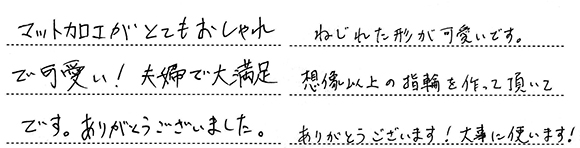 マット加工がとてもおしゃれ
で可愛い！夫婦で大満足
です。ありがとうございました。
ねじれた形が可愛いです。
想像以上の指輪を作って頂いて
ありがとうございます！大事に使います！